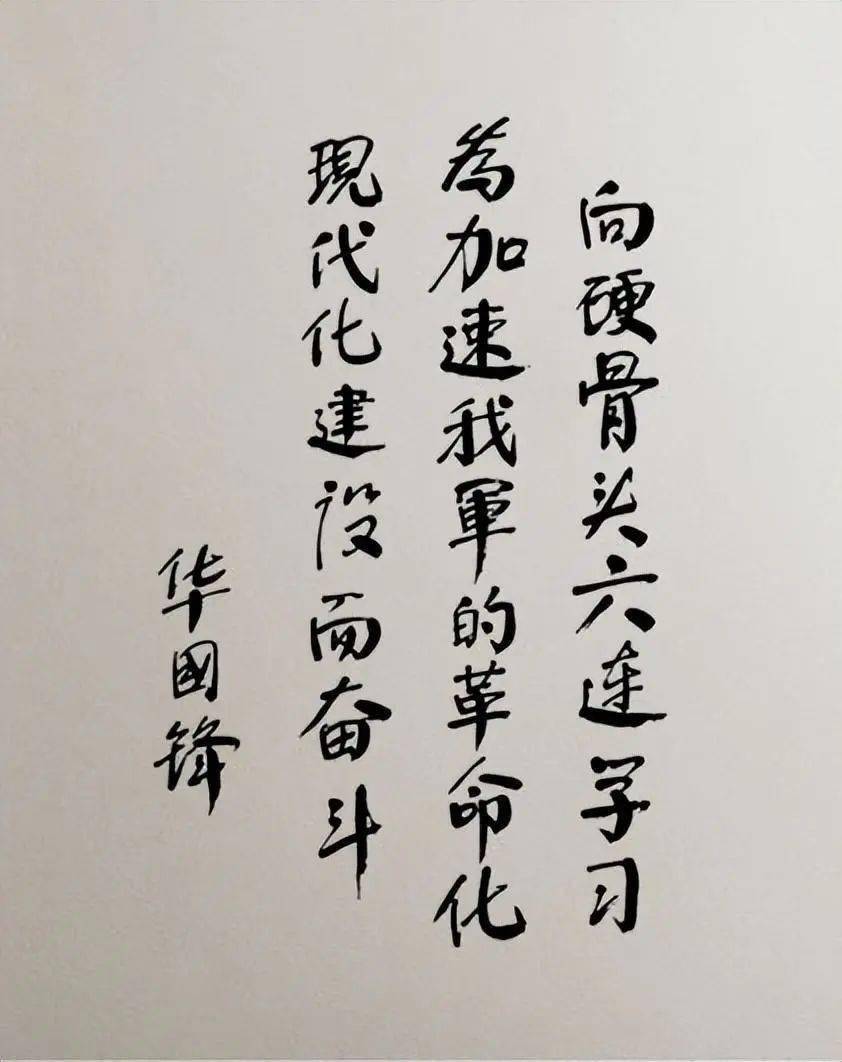 向硬骨头六连学习
為加速我軍的革命化
現代化建設而奋斗
华國锋